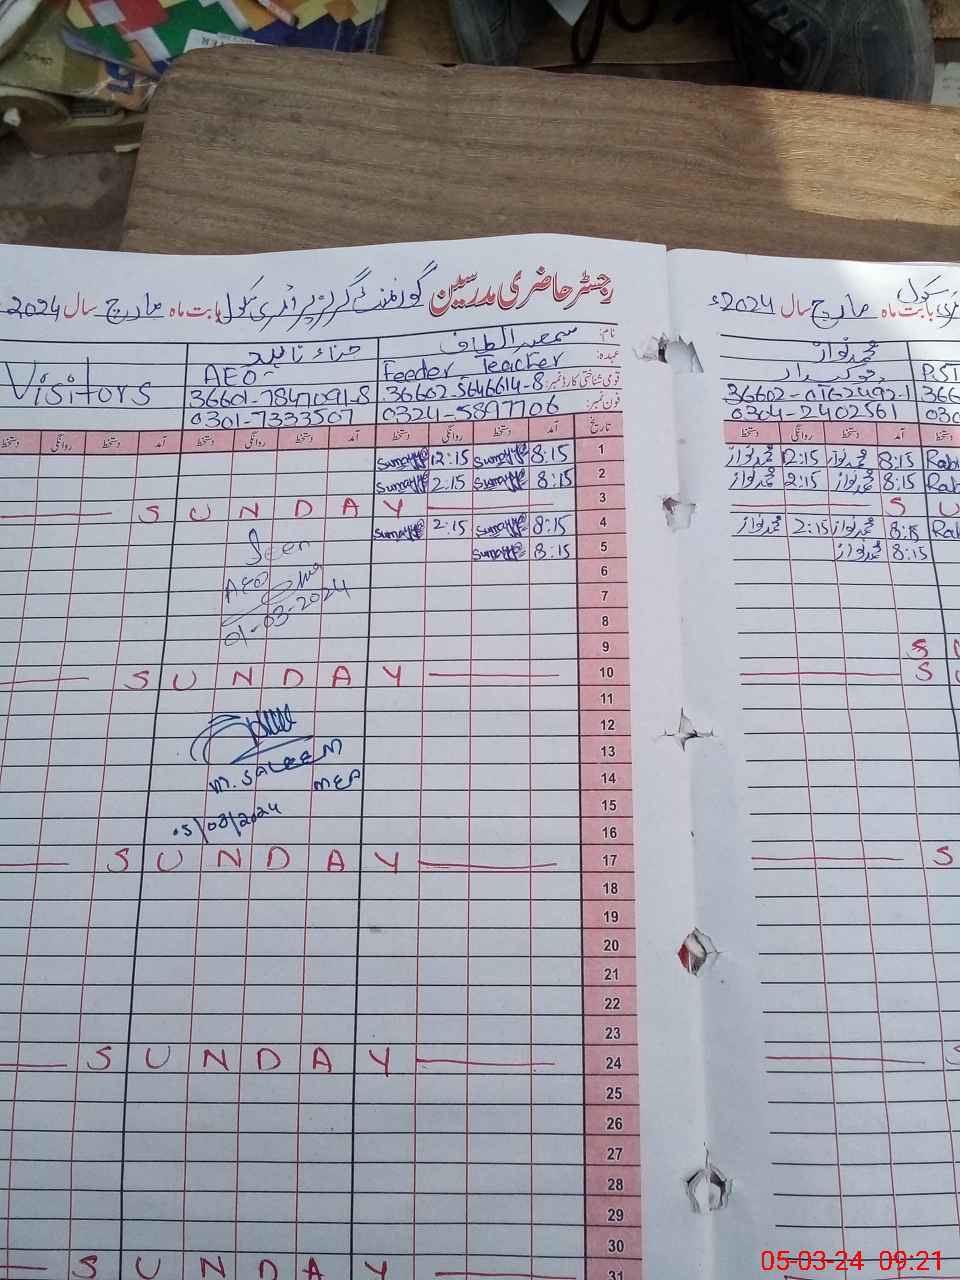 رجسٹر حاضری مدرسین گورنمنٹ گرلز پرائمری سکول بابت ماہ مارچ سال 2024ء
نام: سمعیہ الطاف
حناء ناہید
عہدہ: Feeder Teacher
AEO
Visitors
قومی شناختی کارڈ نمبر: 36602-5646614-8
36601-7847091-8
فون نمبر: 0324-5897706
0301-7333507
تاریخ آمد دستخط روانگی دستخط آمد دستخط روانگی دستخط آمد دستخط روانگی دستخط
1 8:15 Sumayya 12:15 Sumayya
2 8:15 Sumayya 2:15 Sumayya
3 SUNDAY
4 8:15 Sumayya 2:15 Sumayya
5 8:15 Sumayya
6
7
8
9
10 SUNDAY
11
12
13
14
15
16
17 SUNDAY
18
19
20
21
22
23
24 SUNDAY
25
26
27
28
29
30
31 SUNDAY
Seen
AEO
01-03-2024
M. SALEEM
MEA
05/03/2024
سکول
بابت ماہ مارچ سال 2024ء
محمد نواز
چوکیدار
PST
36602-0162492-1
366
0304-2402561
030
دستخط آمد دستخط روانگی دستخط
Rab 8:15 محمد نواز 12:15 محمد نواز
Rab 8:15 محمد نواز 2:15 محمد نواز
S U
Rab 8:15 محمد نواز 2:15 محمد نواز
8:15 محمد نواز
S
S
S
S
05-03-24 09:21